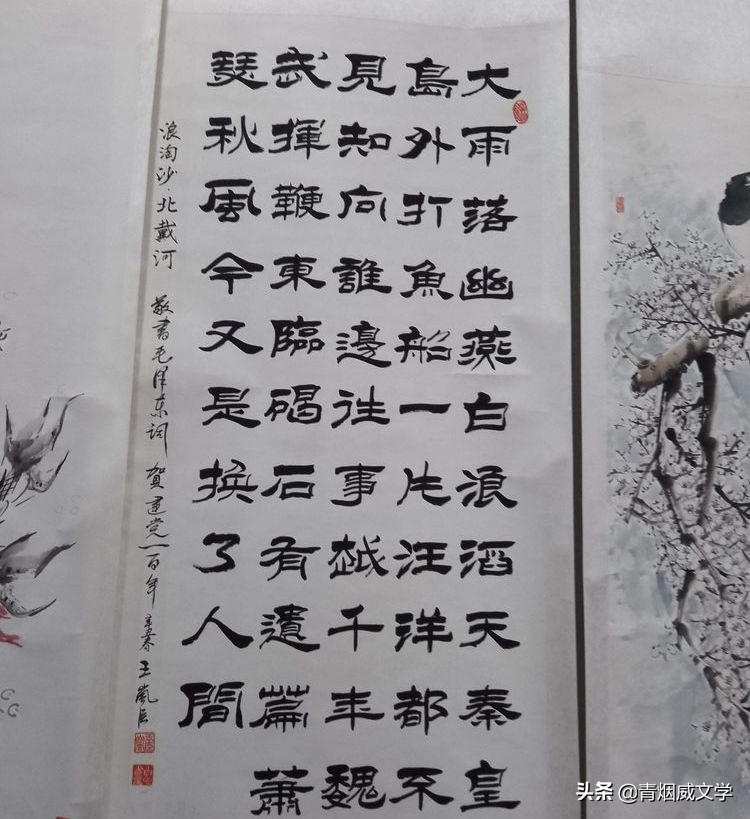 大雨落幽燕白浪滔天秦皇
島外打魚船一片汪洋都不
見知向誰邊往事越千年魏
武揮鞭東臨碣石有遺篇蕭
瑟秋風今又是換了人間
浪淘沙·北戴河 敬書毛泽东词 贺建党一百年 辛丑春 王嵐
头条 @青烟威文学